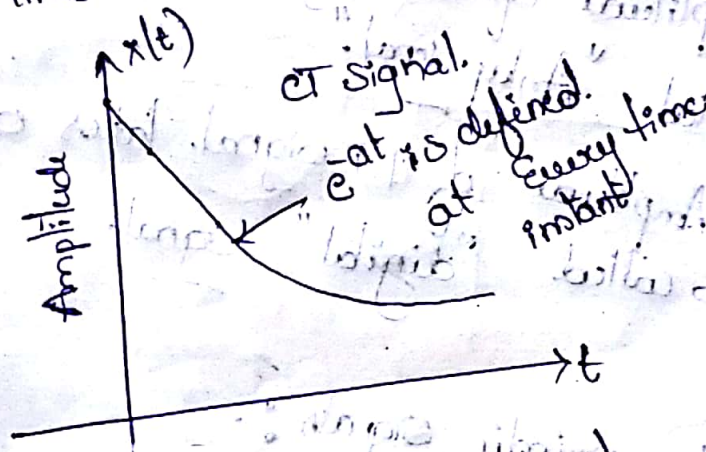 x(t)
CT signal.
e^-at is defined.
at Every time
instant
Amplitude
t